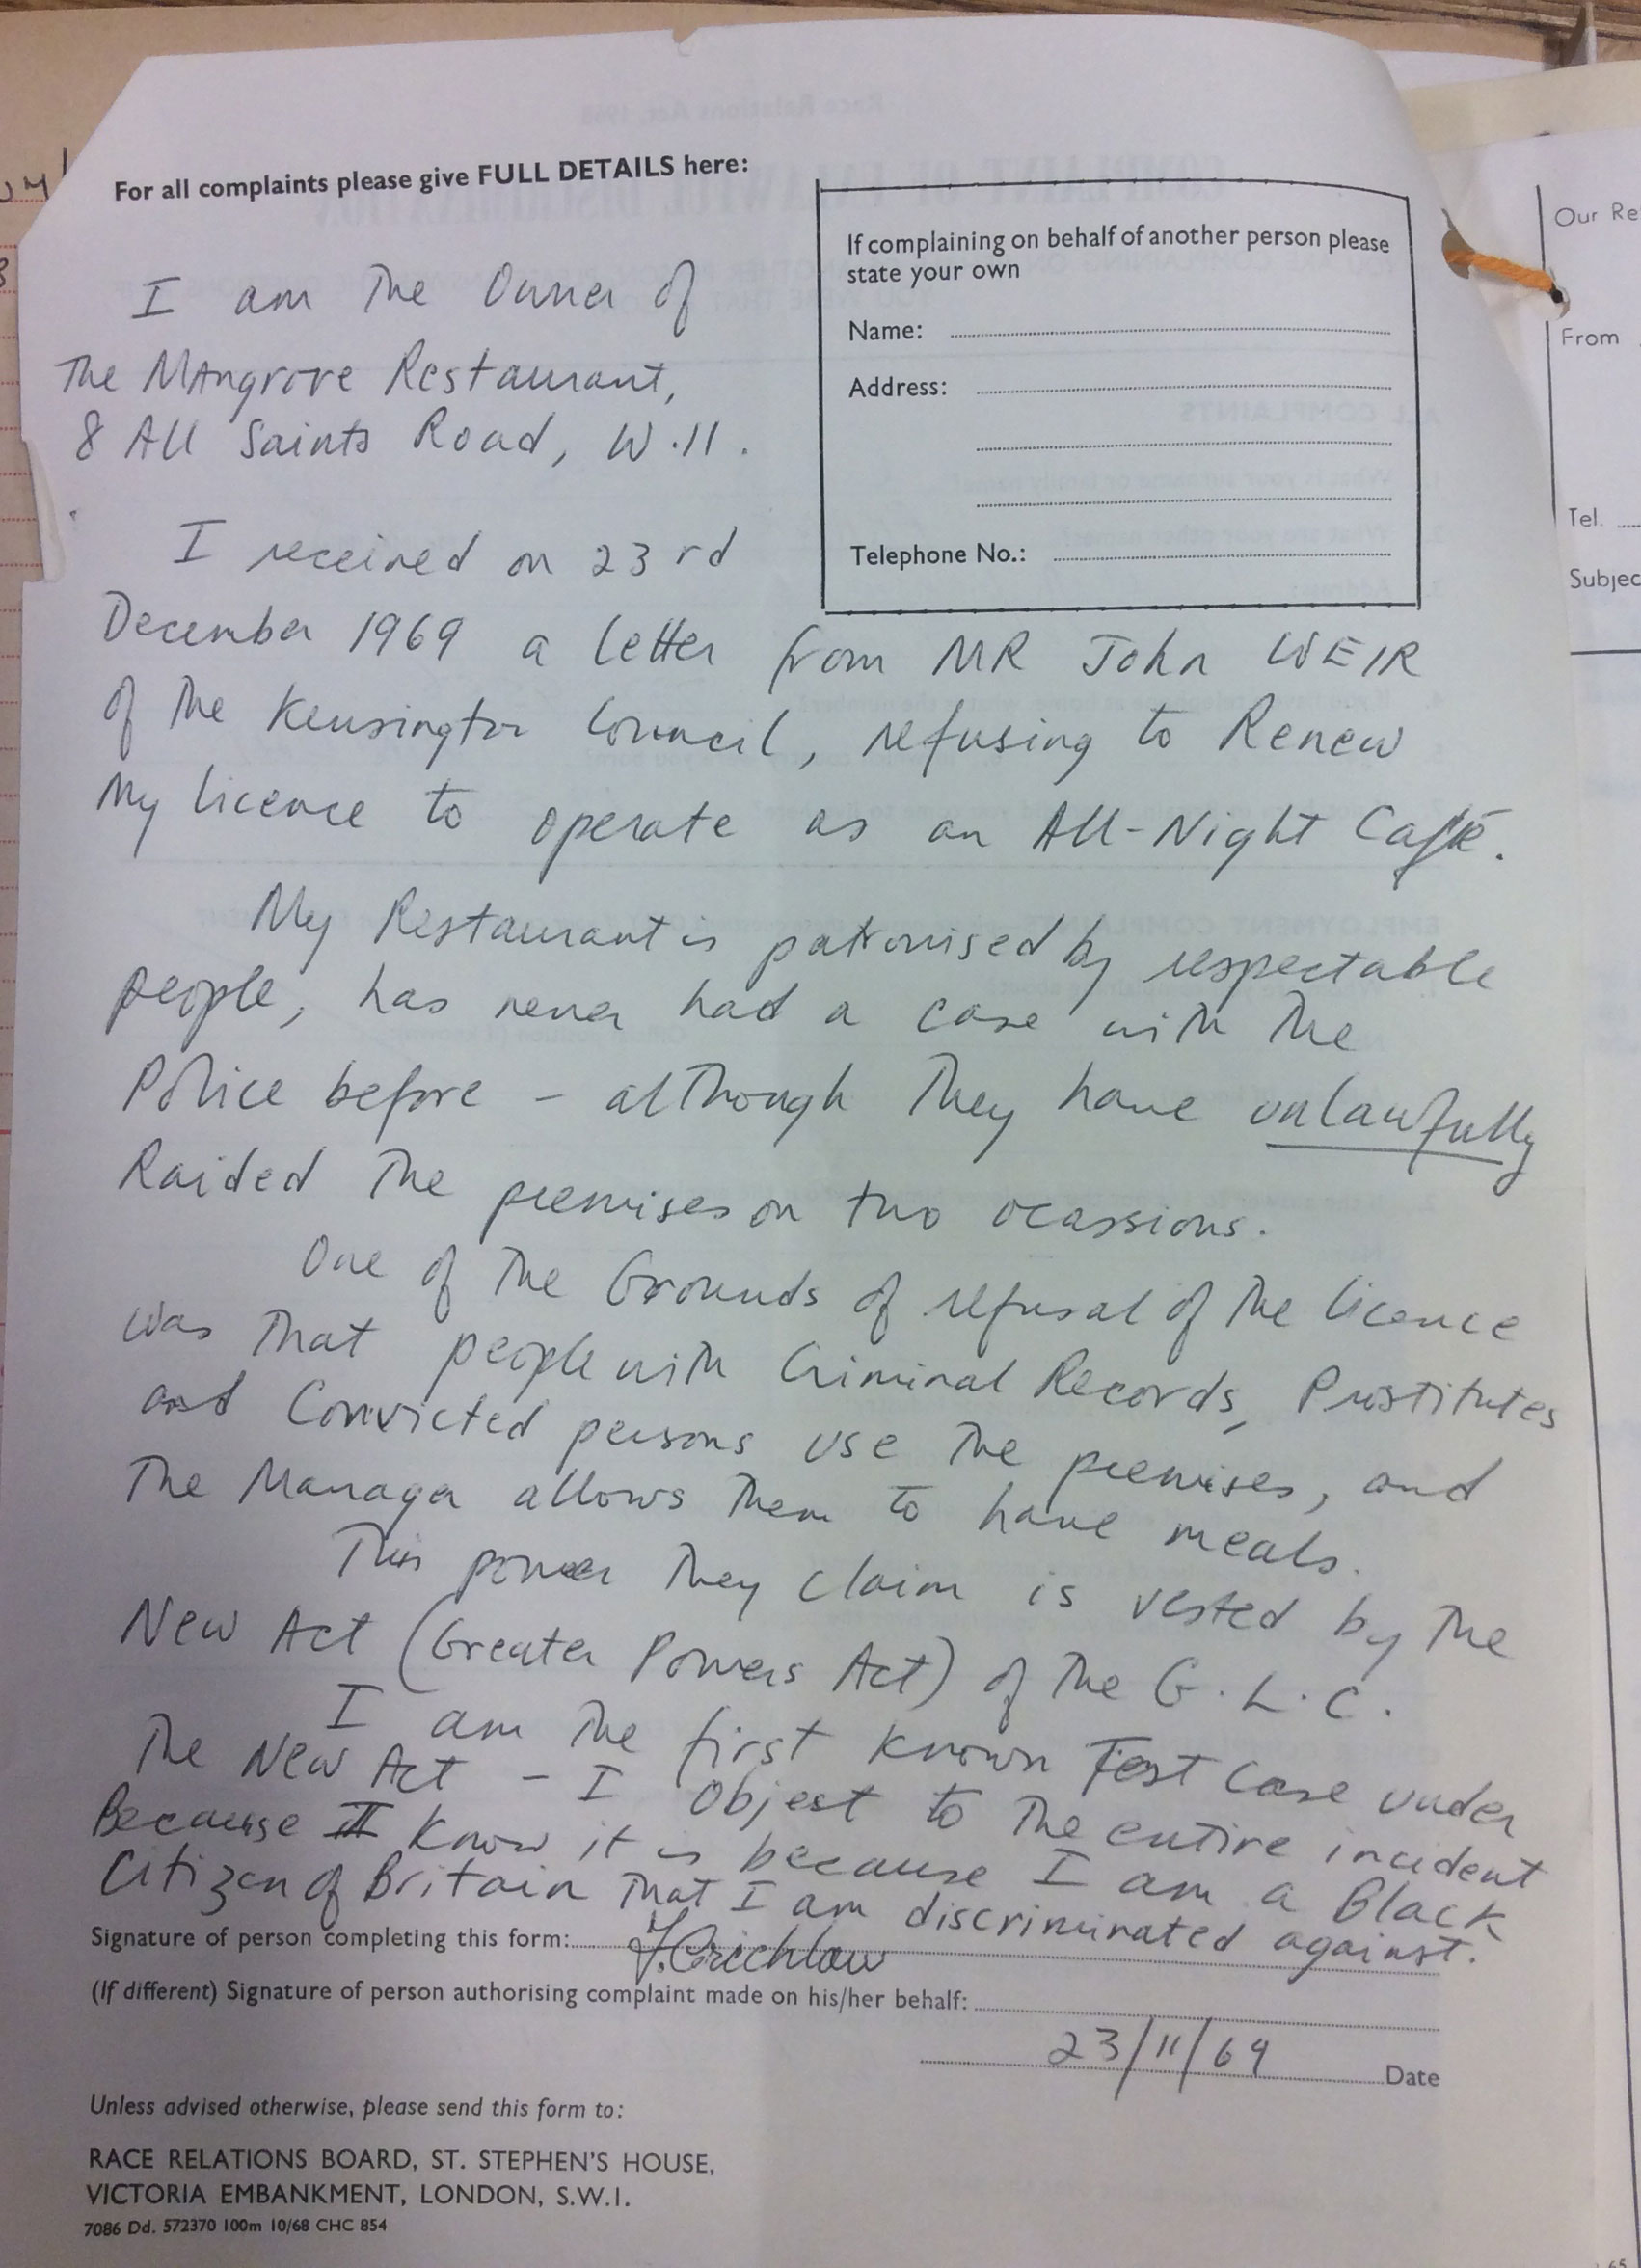 For all complaints please give FULL DETAILS here:
If complaining on behalf of another person please
state your own
Name:
Address:
Telephone No.:
I am The Owner of
The MAngrove Restaurant,
8 All Saints Road, W.11.
I received on 23rd
December 1969 a letter from MR John WEIR
of The Kensington Council, refusing to Renew
My licence to operate as an All-Night Café.
My Restaurant is patronised by respectable
people, has never had a case with The
Police before - although They have unlawfully
Raided The premises on two ocassions.
One of The Grounds of refusal of The licence
was That people with Criminal Records, Prostitutes
and Convicted persons use The premises, and
The Manager allows Them to have meals.
This power They claim is vested by The
New Act (Greater Powers Act) of The G.L.C.
I am The first known Test Case under
The New Act - I Object to The entire incident
Because I know it is because I am a Black
Citizen of Britain That I am discriminated against.
Signature of person completing this form: F. Crichlow
(If different) Signature of person authorising complaint made on his/her behalf:
23/11/69 Date
Unless advised otherwise, please send this form to:
RACE RELATIONS BOARD, ST. STEPHEN'S HOUSE,
VICTORIA EMBANKMENT, LONDON, S.W.I.
7086 Dd. 572370 100m 10/68 CHC 854
Our Re
From
Tel.
Subjec